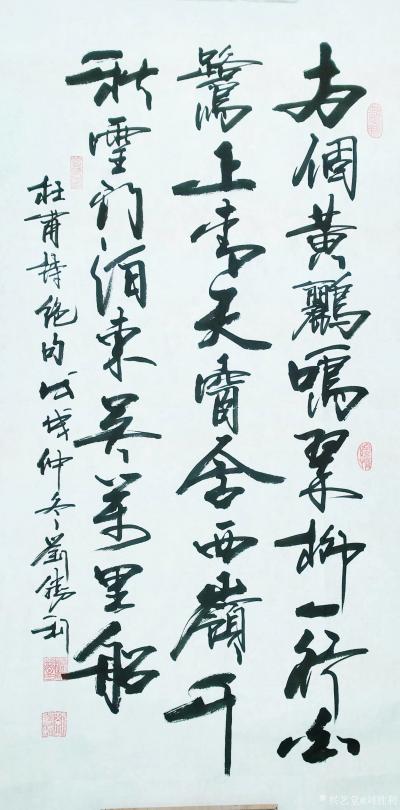 兩個黄鸝鳴翠柳一行白
鷺上青天窗含西嶺千
秋雪门泊東吴萬里船
杜甫詩绝句戊戌仲冬劉勝利